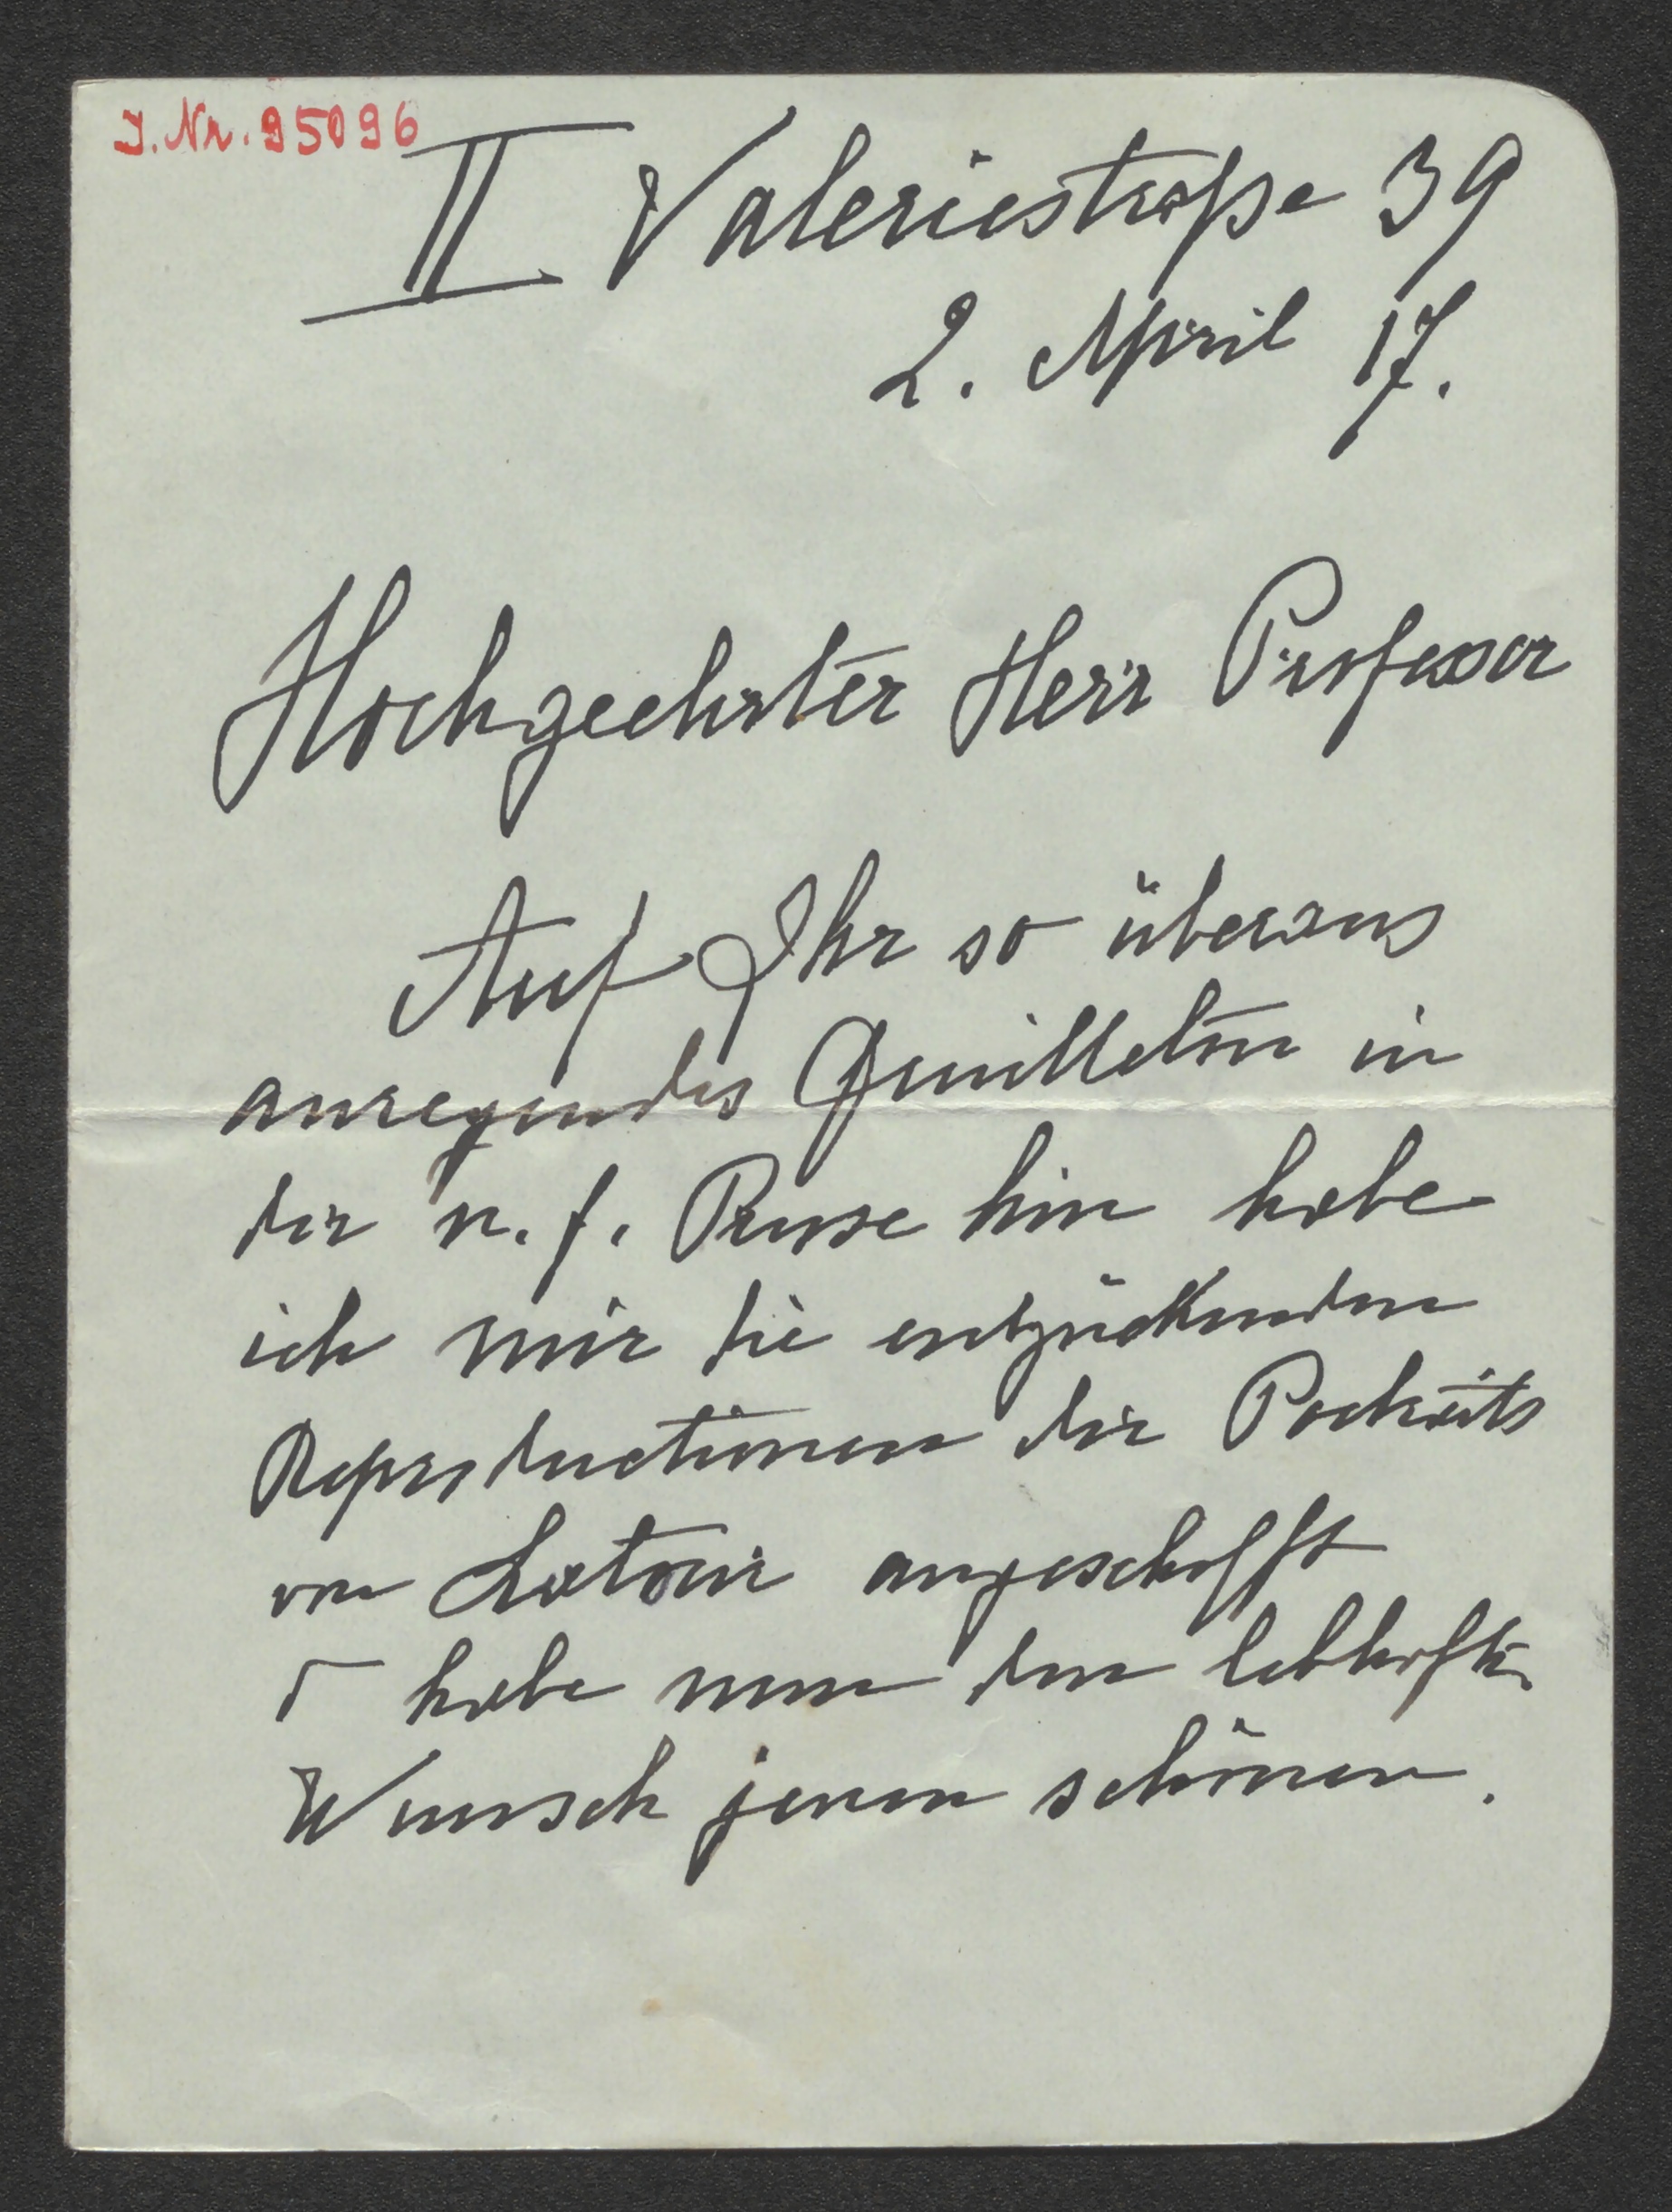 J. Nr. 95096
II Valeriestraße 39
2. April 17.
Hochgeehrter Herr Professor
Auf Ihr so überaus
anregendes Feuilleton in
der n. f. Presse hin habe
ich mir die entzückenden
Reproductionen der Porträts
von Latour angeschafft
& habe nun den lebhaften
Wunsch jenen schönen